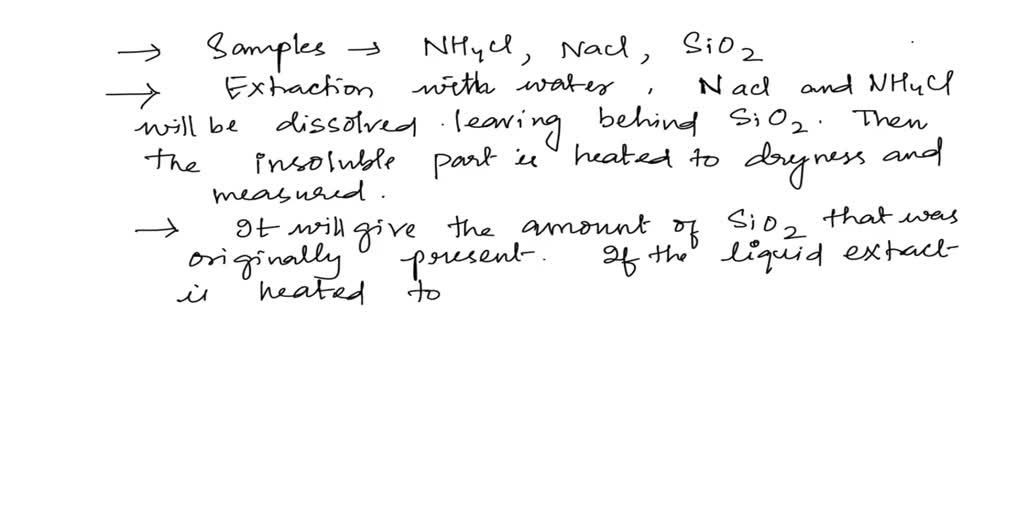 → Samples → NH4Cl, Nacl, SiO2
→ Extraction with water, Nacl and NH4Cl
will be dissolved. leaving behind SiO2. Then
the insoluble part is heated to dryness and
measured.
→ It will give the amount of SiO2 that was
originally present. If the liquid extract
is heated to